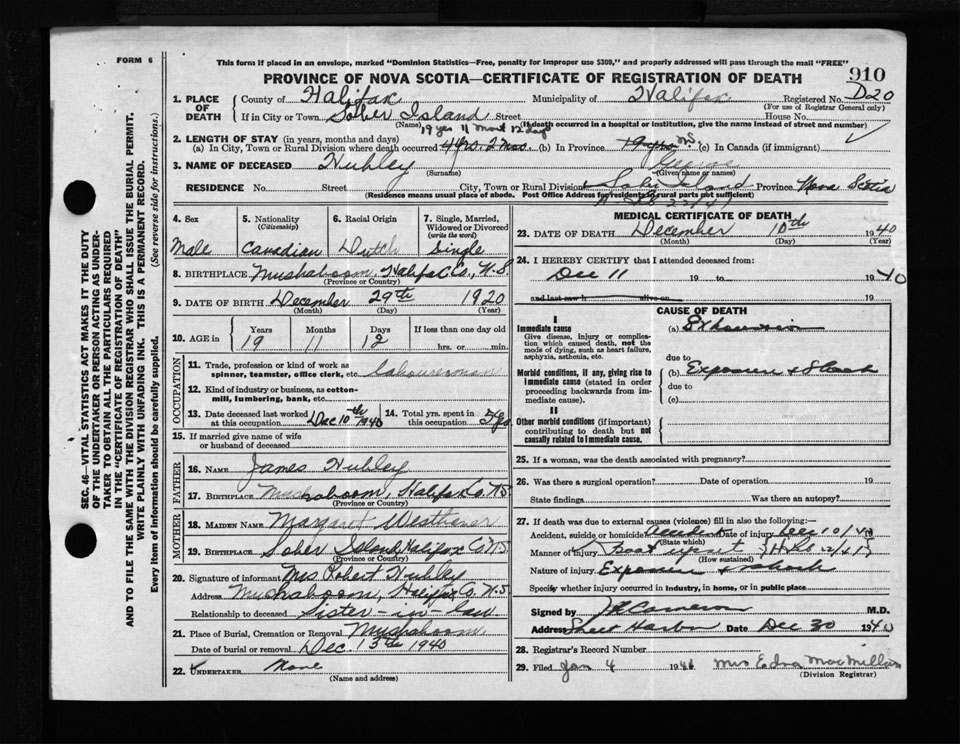 FORM 6
This form if placed in an envelope, marked "Dominion Statistics—Free, penalty for improper use $300," and properly addressed will pass through the mail "FREE"
PROVINCE OF NOVA SCOTIA—CERTIFICATE OF REGISTRATION OF DEATH
910
1. PLACE OF DEATH
County of Halifax Municipality of Halifax Registered No. D20
(For use of Registrar General only)
If in City or Town Sober Island Street House No.
(Name) (If death occurred in a hospital or institution, give the name instead of street and number)
19 yrs 11 mont 12 days
2. LENGTH OF STAY (in years, months and days)
(a) In City, Town or Rural Division where death occurred 4 yrs. 2 mos. (b) In Province 19 yrs. (c) In Canada (if immigrant)
3. NAME OF DECEASED Hubley George
(Surname) (Given name or names)
RESIDENCE No. Street City, Town or Rural Division Sober Island Province Nova Scotia
(Residence means usual place of abode. Post Office Address for residents in rural parts not sufficient)
4. Sex Male
5. Nationality (Citizenship) Canadian
6. Racial Origin Dutch
7. Single, Married, Widowed or Divorced (write the word) Single
8. BIRTHPLACE Mushaboom, Halifax Co., N.S.
(Province or Country)
9. DATE OF BIRTH December 29th 1920
(Month) (Day) (Year)
10. AGE in Years Months Days If less than one day old
19 11 12 hrs. or min.
OCCUPATION
11. Trade, profession or kind of work as spinner, teamster, office clerk, etc. labourerman
12. Kind of industry or business, as cotton-mill, lumbering, bank, etc.
13. Date deceased last worked at this occupation Dec 10th 1940
14. Total yrs. spent in this occupation
15. If married give name of wife or husband of deceased
FATHER
16. NAME James Hubley
17. BIRTHPLACE Mushaboom, Halifax Co. N.S.
(Province or Country)
MOTHER
18. MAIDEN NAME Margaret Westhaver
19. BIRTHPLACE Sober Island Halifax Co N.S.
(Province or Country)
20. Signature of informant Mrs Robert Hubley
Address Mushaboom, Halifax Co. N.S.
Relationship to deceased Sister-in-law
21. Place of Burial, Cremation or Removal Mushaboom
Date of burial or removal Dec. 13th 1940
22. UNDERTAKER None
(Name and address)
MEDICAL CERTIFICATE OF DEATH
23. DATE OF DEATH December 10th 1940
(Month) (Day) (Year)
24. I HEREBY CERTIFY that I attended deceased from:
Dec 11 19 to 1940
and last saw h alive on 19
CAUSE OF DEATH
I
Immediate cause
Give disease, injury or complication which caused death, not the mode of dying, such as heart failure, asphyxia, asthenia, etc.
(a) Exhaustion
due to
Morbid conditions, if any, giving rise to Immediate cause (stated in order proceeding backwards from immediate cause).
(b) Exposure + Shock
due to
(c)
II
Other morbid conditions (if important) contributing to death but not causally related to immediate cause.
25. If a woman, was the death associated with pregnancy?
26. Was there a surgical operation? Date of operation 19
State findings Was there an autopsy?
27. If death was due to external causes (violence) fill in also the following:—
Accident, suicide or homicide? Accident Date of injury Dec 10/40 19
(State which)
Manner of Injury Boat upset
(How sustained)
Nature of injury Exposure + shock
Specify whether injury occurred in industry, in home, or in public place
Signed by J R Cameron M.D.
Address Sheet Harbor Date Dec 30 1940
28. Registrar's Record Number
29. Filed Jan 4 1941 Mrs Edna MacMillan
(Division Registrar)
SEC. 46—VITAL STATISTICS ACT MAKES IT THE DUTY
OF THE UNDERTAKER OR PERSON ACTING AS UNDER-
TAKER TO OBTAIN ALL THE PARTICULARS REQUIRED
IN THE "CERTIFICATE OF REGISTRATION OF DEATH"
AND TO FILE THE SAME WITH THE DIVISION REGISTRAR WHO SHALL ISSUE THE BURIAL PERMIT.
WRITE PLAINLY WITH UNFADING INK. THIS IS A PERMANENT RECORD.
Every item of information should be carefully supplied. (See reverse side for instructions.)